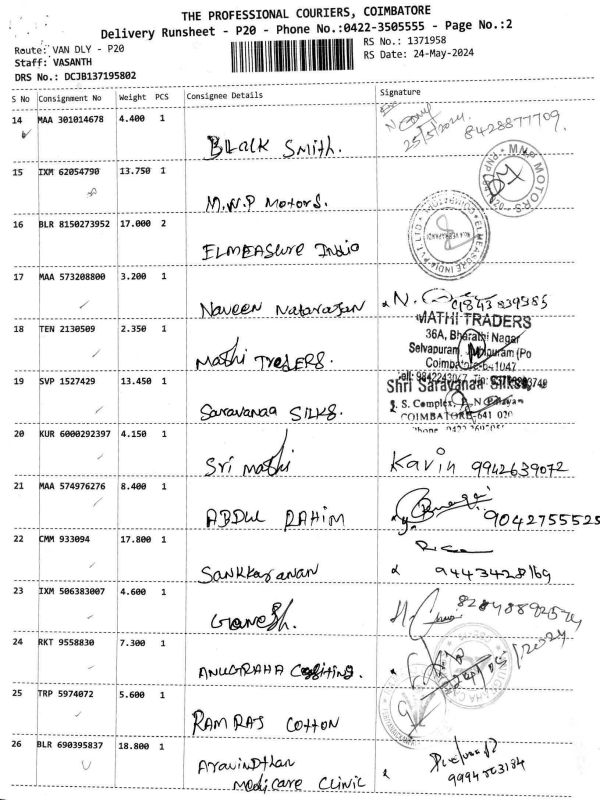 THE PROFESSIONAL COURIERS, COIMBATORE
Delivery Runsheet - P20 - Phone No.:0422-3505555 - Page No.:2
Route: VAN DLY - P20
RS No.: 1371958
Staff: VASANTH
RS Date: 24-May-2024
DRS No.: DCJB137195802
S No Consignment No Weight PCS Consignee Details Signature
14 MAA 301014678 4.400 1 BLACK Smith. 25/5/2024. 8428877709.
15 IXM 62054790 13.750 1 M.N.P Motors. M.N.P MOTORS
16 BLR 8150273952 17.000 2 ELMEASure India ELMEASURE INDIA PVT LTD
17 MAA 573208800 3.200 1 Naveen Natarajan
18 TEN 2130509 2.350 1 Mathi TRADERS.
MATHI TRADERS
36A, Bharathi Nagar
Selvapuram
19 SVP 1527429 13.450 1 Saravanaa SILKS.
Shri Saravanaa Silks
S. S. Complex,
COIMBATORE-641 020
20 KUR 6000292397 4.150 1 Sri Mathi Kavin 9942639072
21 MAA 574976276 8.400 1 ABDUL RAHIM 9042755525
22 CMM 933094 17.800 1 Sankkaranan 9443428169
23 IXM 506383007 4.600 1 Ganesh.
24 RKT 9558830 7.300 1 ANUGRAHA
25 TRP 5974072 5.600 1 RAMRAJ COTTON
26 BLR 690395837 18.800 1 Aravindthan
Medicare CLINIC